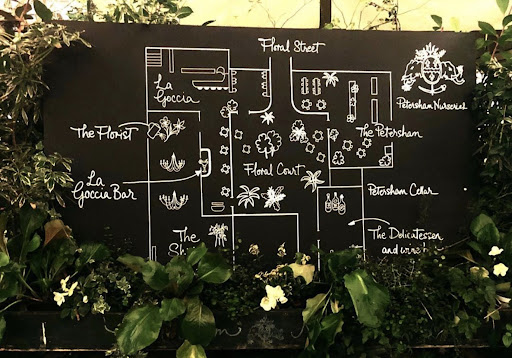 Floral Street
La
Goccia
Petersham Nurseries
The Florist
The Petersham
Floral Court
La
Goccia Bar
Petersham Cellar
The
The Delicatessen
and wine